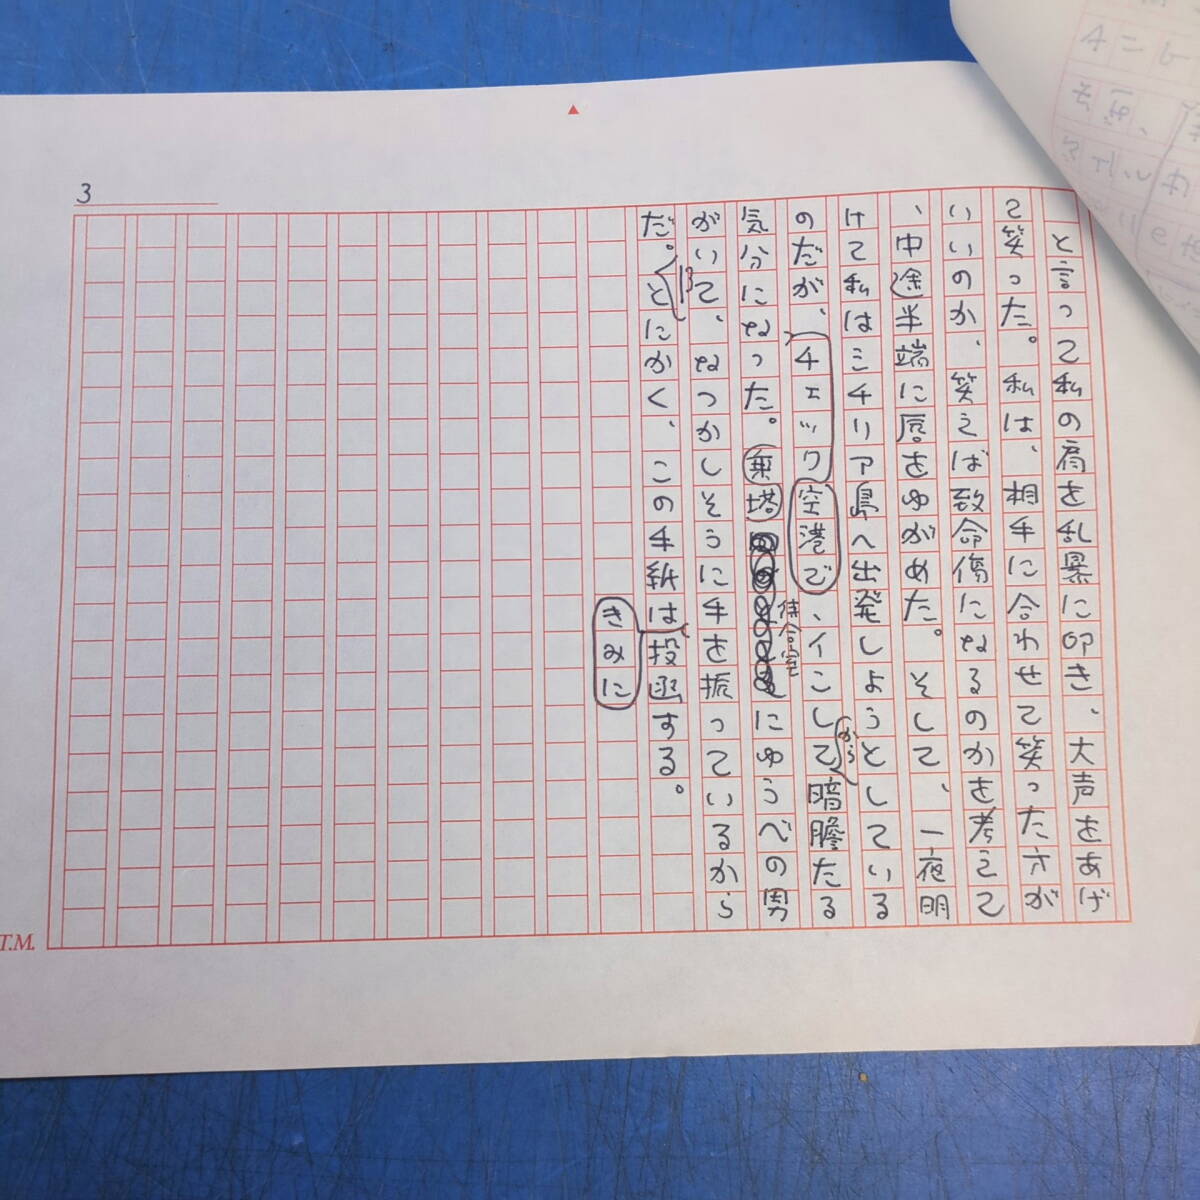 3
と言って私の肩を乱暴に叩き、大声をあげ
て笑った。私は、相手に合わせて笑った方が
いいのか、笑えば致命傷になるのかを考えて
、中途半端に唇をゆがめた。そして、一夜明
けて私はミチリア島へ出発しようとしている
から
のだが、チェックイン空港で、イこして暗膽たる
待合室
気分になった。乗塔にゆうべの男
がいて、なつかしそうに手を振っているから
だ。とにかく、この手紙は投函する。
きみに
T.M.